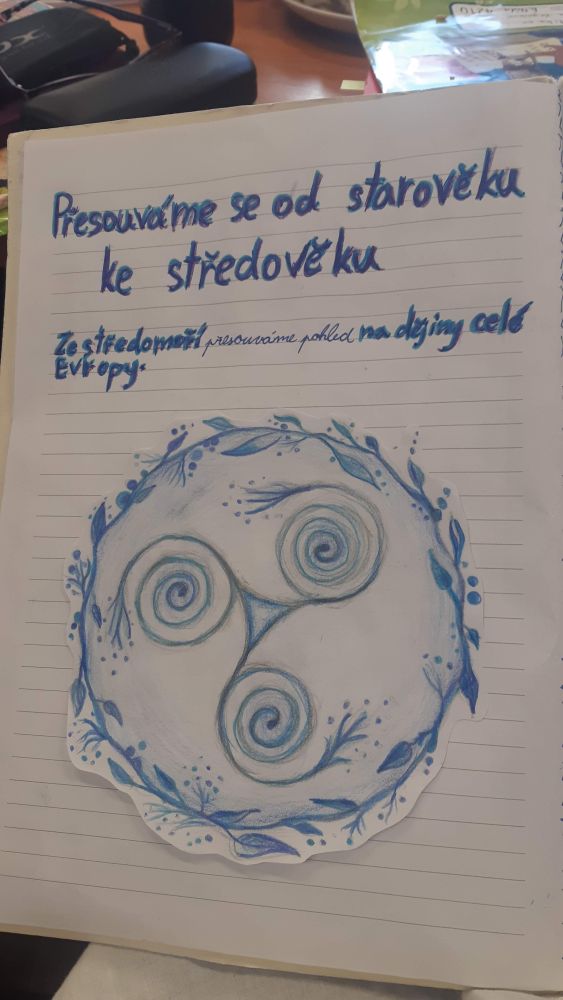 Přesouváme se od starověku
ke středověku
Ze středomoří přesouváme pohled na dějiny celé
Evropy.